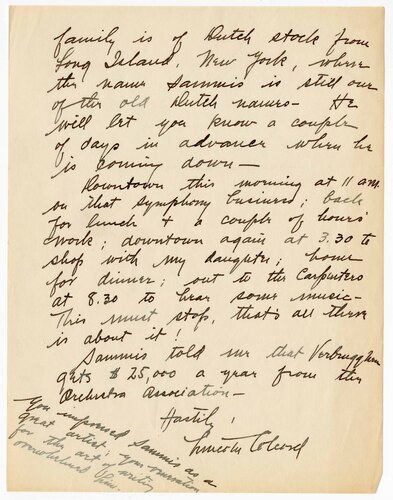 family is of Dutch stock from
Long Island, New York, where
the name Sammis is still one
of the old Dutch names - He
will let you know a couple
of days in advance when he
is coming down -
Downtown this morning at 11 am.
on that symphony business; back
for lunch & a couple of hours'
work; downtown again at 3.30 to
shop with my daughter; home
for dinner; out to the Carpenters
at 8.30 to hear some music -
This must stop, that's all there
is about it!
Sammis told me that Verbrugghen
gets $25,000 a year from the
Orchestra Association -
Hastily,
Lincoln Colcord
You impressed Sammis as a
great artist; your
for the art of writing
overwhelmed him.